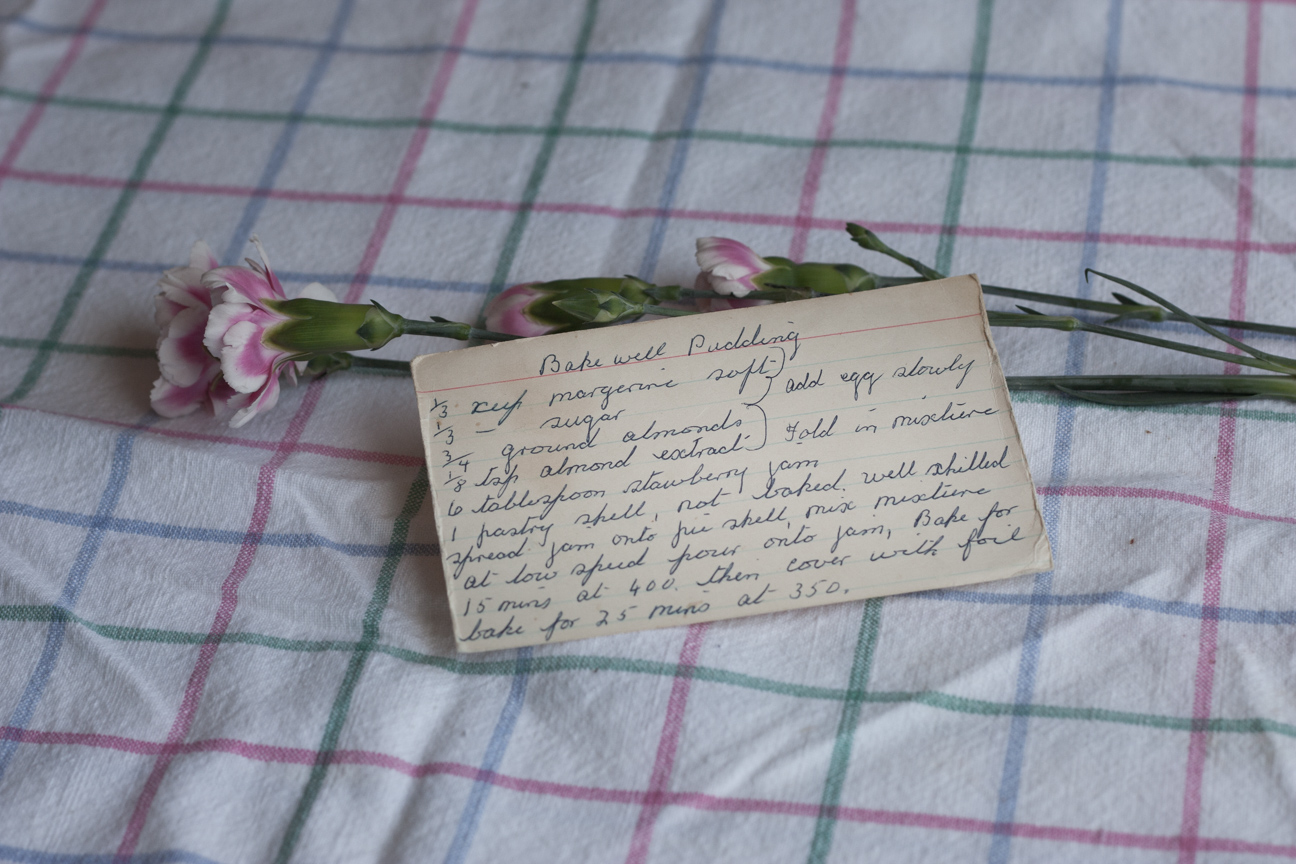 Bakewell Pudding
1/3 cup margerine soft } add egg slowly
1/3 _ sugar
3/4 ground almonds } Fold in mixture
1/8 tsp almond extract
6 tablespoon stawberry jam
1 pastry shell, not baked. well chilled
spread jam onto pie shell, mix mixture
at low speed pour onto jam, Bake for
15 mins at 400. then cover with foil
bake for 25 mins at 350.